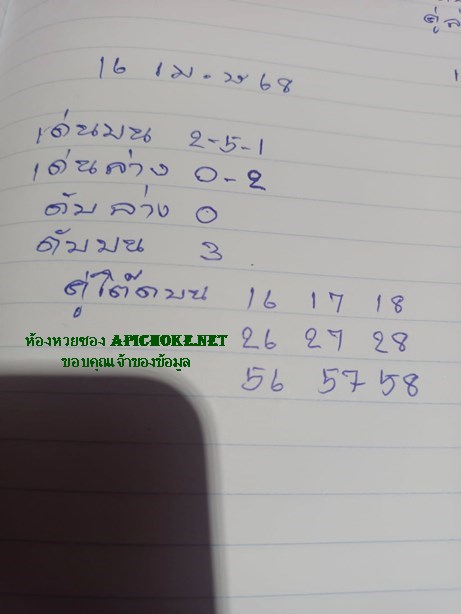 คู่ล
16 เม.ษ 68
เด่นบน 2-5-1
เด่นล่าง 0-2
ดับล่าง 0
ดับบน 3
คู่โต๊ดบน 16 17 18
ห้องหวยซอง APICHOKE.NET 26 27 28
ขอบคุณเจ้าของข้อมูล
56 57 58